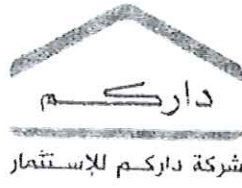 داركم
شركة داركم للإستثمار